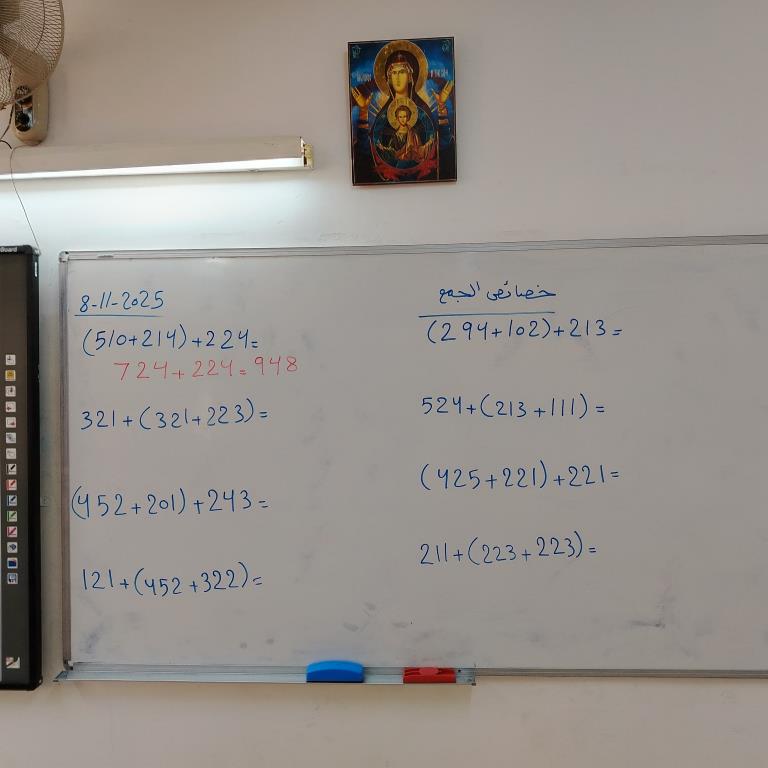 خصائص الجمع
8-11-2025
(510+214)+224=
724+224=948
321+(321+223)=
(452+201)+243=
121+(452+322)=
(294+102)+213=
524+(213+111)=
(425+221)+221=
211+(223+223)=